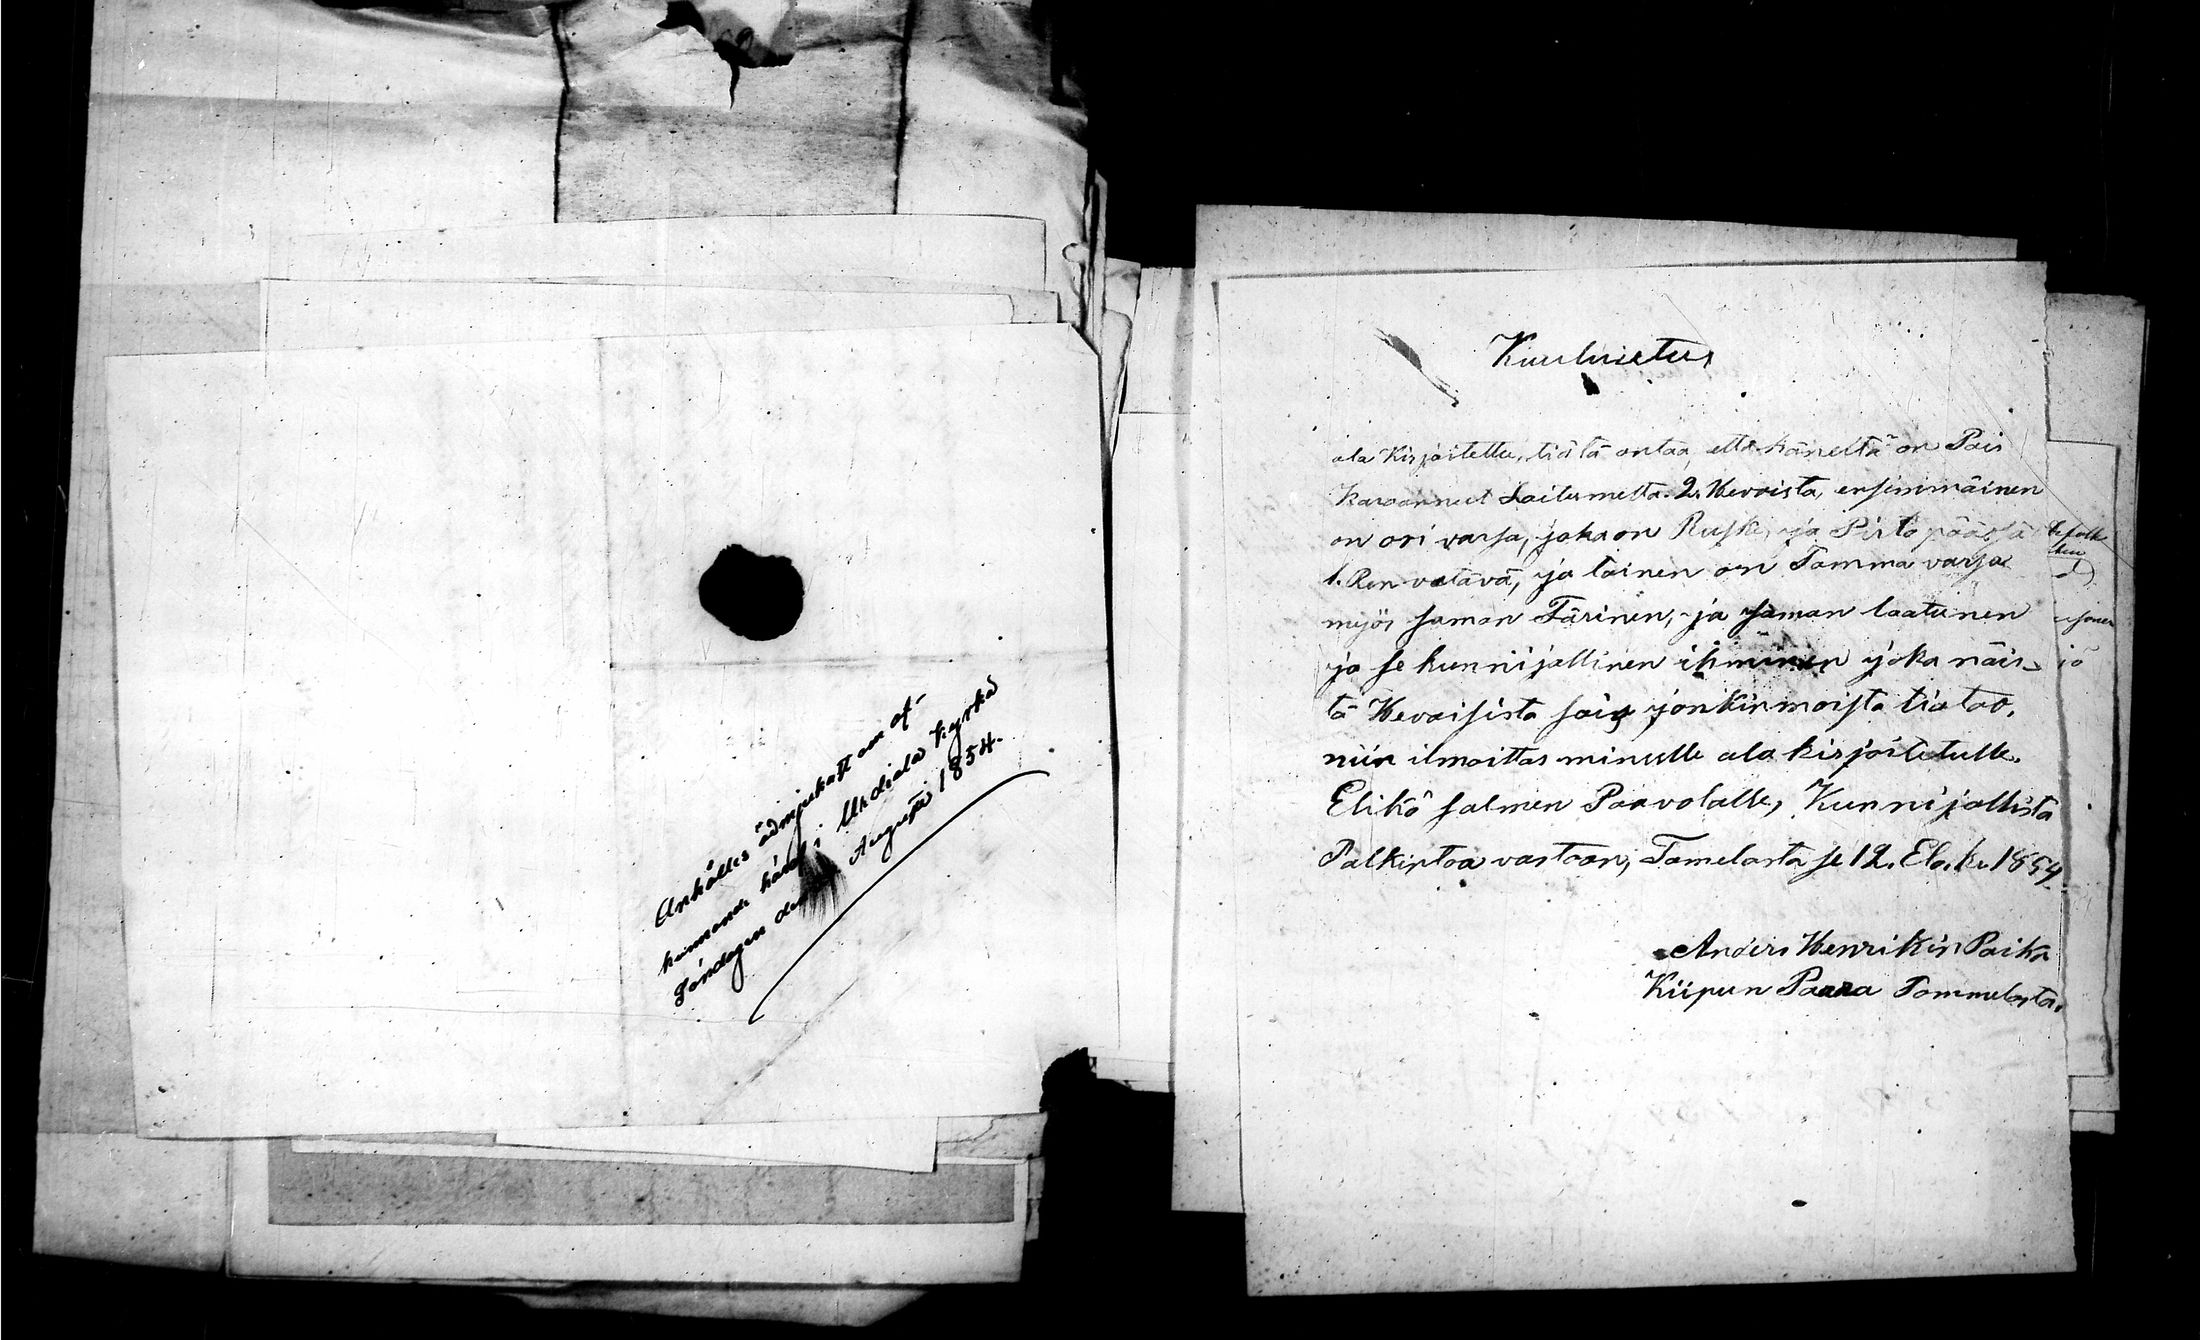 Anhålles ödmjukatt om af-
kunnande härof i Urdiala kyrka
Söndagen den Augusti 1854.
Kuulutus
ala Kirjoitettu, tiätä antaa, että häneltä on Pois
Karaannut Laitumelta. 2. Hevoista, ensimmäinen
on ori varsa, joka on Ruskee, ja Pirto päässä
1. Ren vatavä, ja toinen on Tamma varsa
myös saman Färinen, ja saman laatunen
ja se kunnijallinen ihminen joka näis-
tä Hevoisista sais jonkinmoista tiatoo,
niin ilmoittas minulle ala kirjoitetulle.
Elikö salmen Paavolalle, Kunnijallista
Palkintoa vastaan, Tamelasta se 12. Elo. k. 1854
Anders Henrikin Poika
Kiipun Paara Tammelasta.